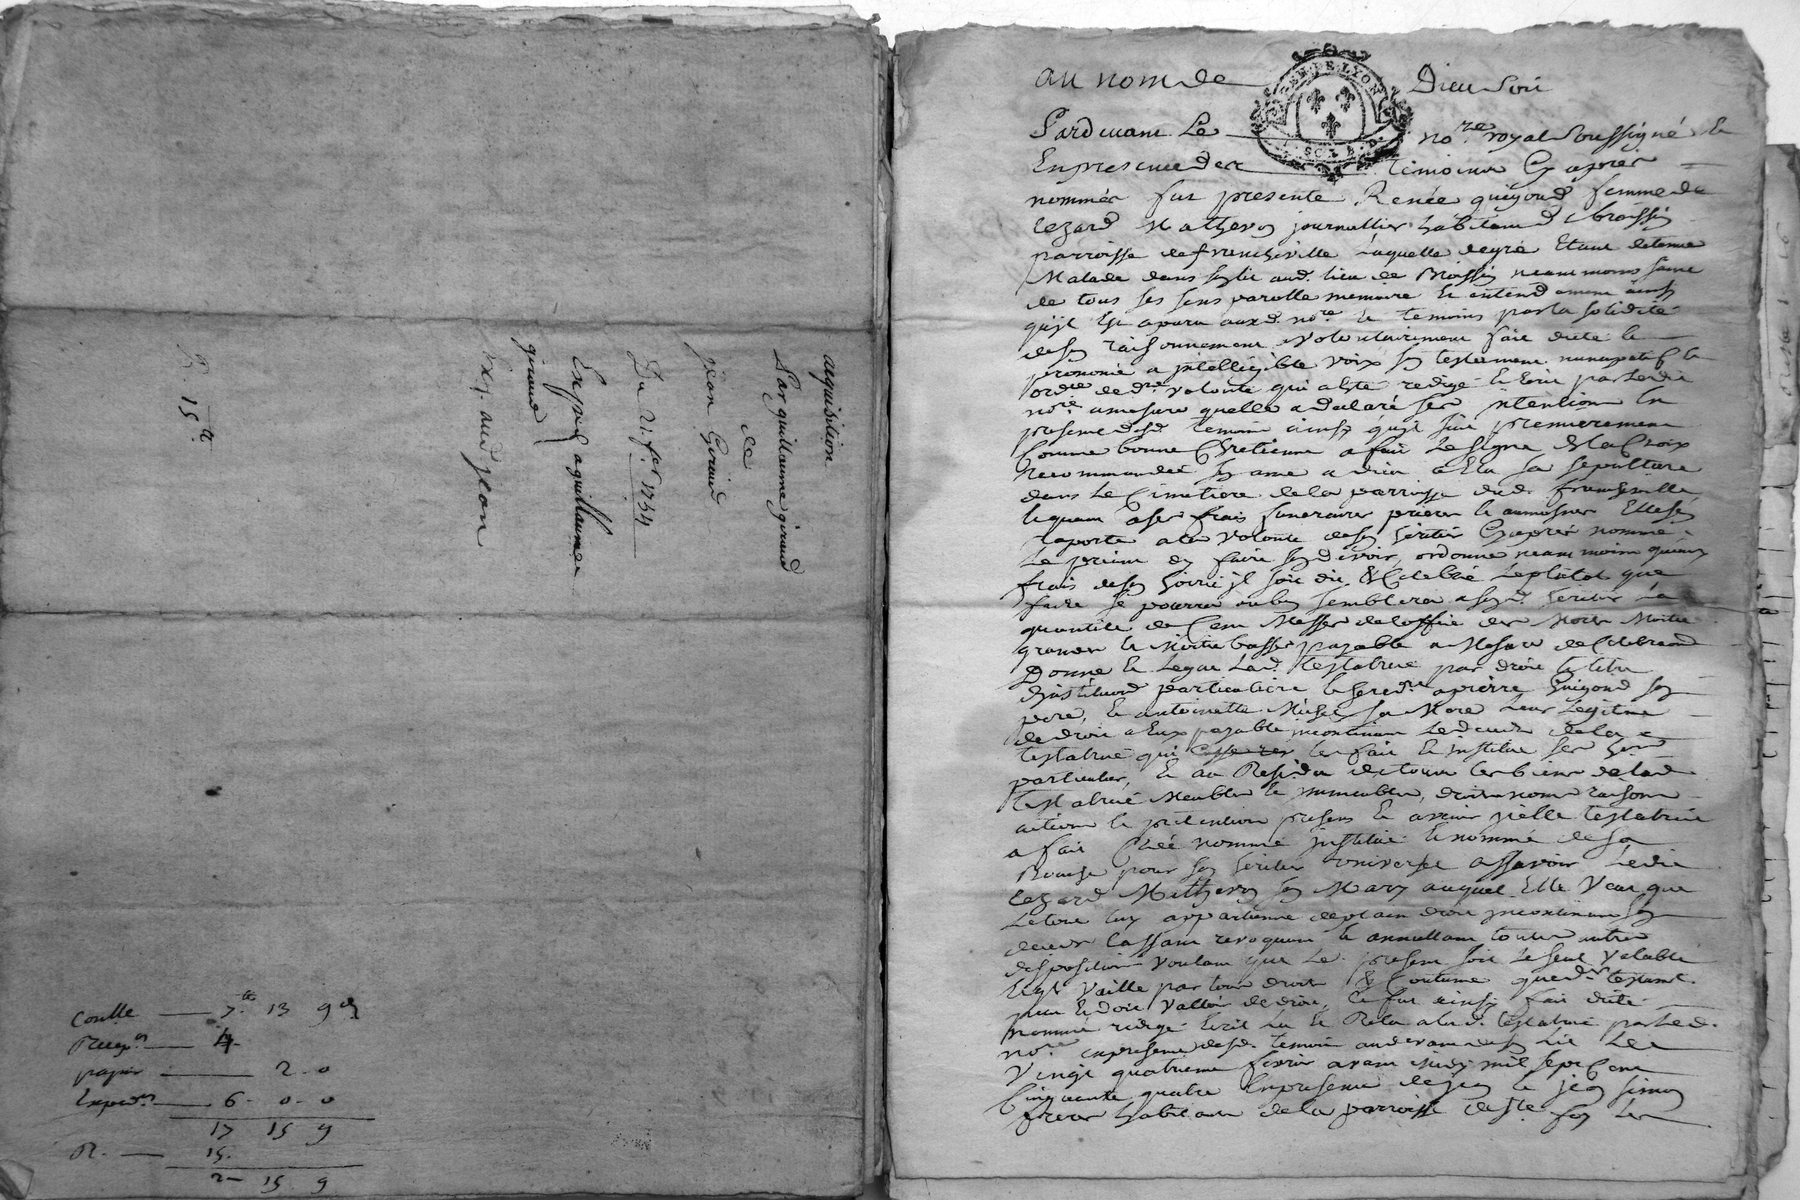 acquisition
Par guillaume giraud
de
jean Giraud
Du 21 fel 1754
Exped a guillaume
giraud
aud jean
R. 15 tt
Coulle 7 13 9
4
papier 2 0
Exped 6 0 0
17 15 9
R. 15
2 15 9
GEN DE LYON
au nom de Dieu soit
Pardevant Le no.re royal soussigné &
En presence des temoins Cy apres
nommés fut presente Renée guigoud femme de
journallier habitant a broissin
parroisse de francheville laquelle de gré Etant detenue
Malade dans son lit aud. lieu de Broissin neanmoins saine
de tous ses sens parolle memoire et entendement ainsy
qu'il est aparu aud. no.re & temoins par la solidité
de son raisonnement a volontairement fait dicté &
prononcé a intelligible voix son testament nuncupatif &
ord.re de d.re volonté qui a esté redigé & Ecrit par led.
no.re a mesure quelle a declaré ses intentions En
presence desd. temoins ainsy quil suit premierement
Comme bonne Chretienne a fait Le signe de la Croix
recommandé son ame a dieu a Elu sa sepulture
dans Le Cimetiere de la parroisse dud. francheville
& quant a ses frais funeraires prieres & aumosnes Elle sen
raporte a la volonté de son heritier Cy apres nommé
Le priant den faire son devoir, ordonne neanmoins quaux
frais de son hoirie il soit dit & Celebré Le plutot que
faire se pourra ou bon semblera a sond. heritier La
quantité de Cent Messes de loffice des Morts Moitié
grandes & Moitié basses payable a Mesure de Celebration
Donne & Legue Lad. testatrice par droit & titre
dinstitution particuliere & hered.re a pierre guigoud son
pere, & antoinette Michel sa Mere Leur Legitime
de droit a Eux payable incontinent Le deces de la
testatrice qui les fait & institue ses her.
particuliers, Et au Residu de tous les biens de lad.
testatrice Meubles & immeubles, droits noms raisons
actions & pretentions presens & avenir icelle testatrice
a fait Créé nommé institué & nommé de sa
Bouche pour son heritier universel assavoir Ledit
son Mary auquel Elle Veut que
Le tout luy appartienne de plain droit incontinent son
deces Cassant revoquant & annullant toutes autres
dispositions Voulant que Le present soit Le seul Valable
& quil Vaille par tout droit & Coutume que d.r testament
peut & doit Valloir de droit, Ce fut ainsy fait dicté
nommé redigé Ecrit Lu & Relu a lad. testatrice par led.
no.re En presence desd. temoins au devant de son Lit Le
Vingt quatrieme fevrier avant midy mil sept Cent
Cinquante quatre En presence de jean & jean simon
freres habitants de la parroisse de ste. foy les